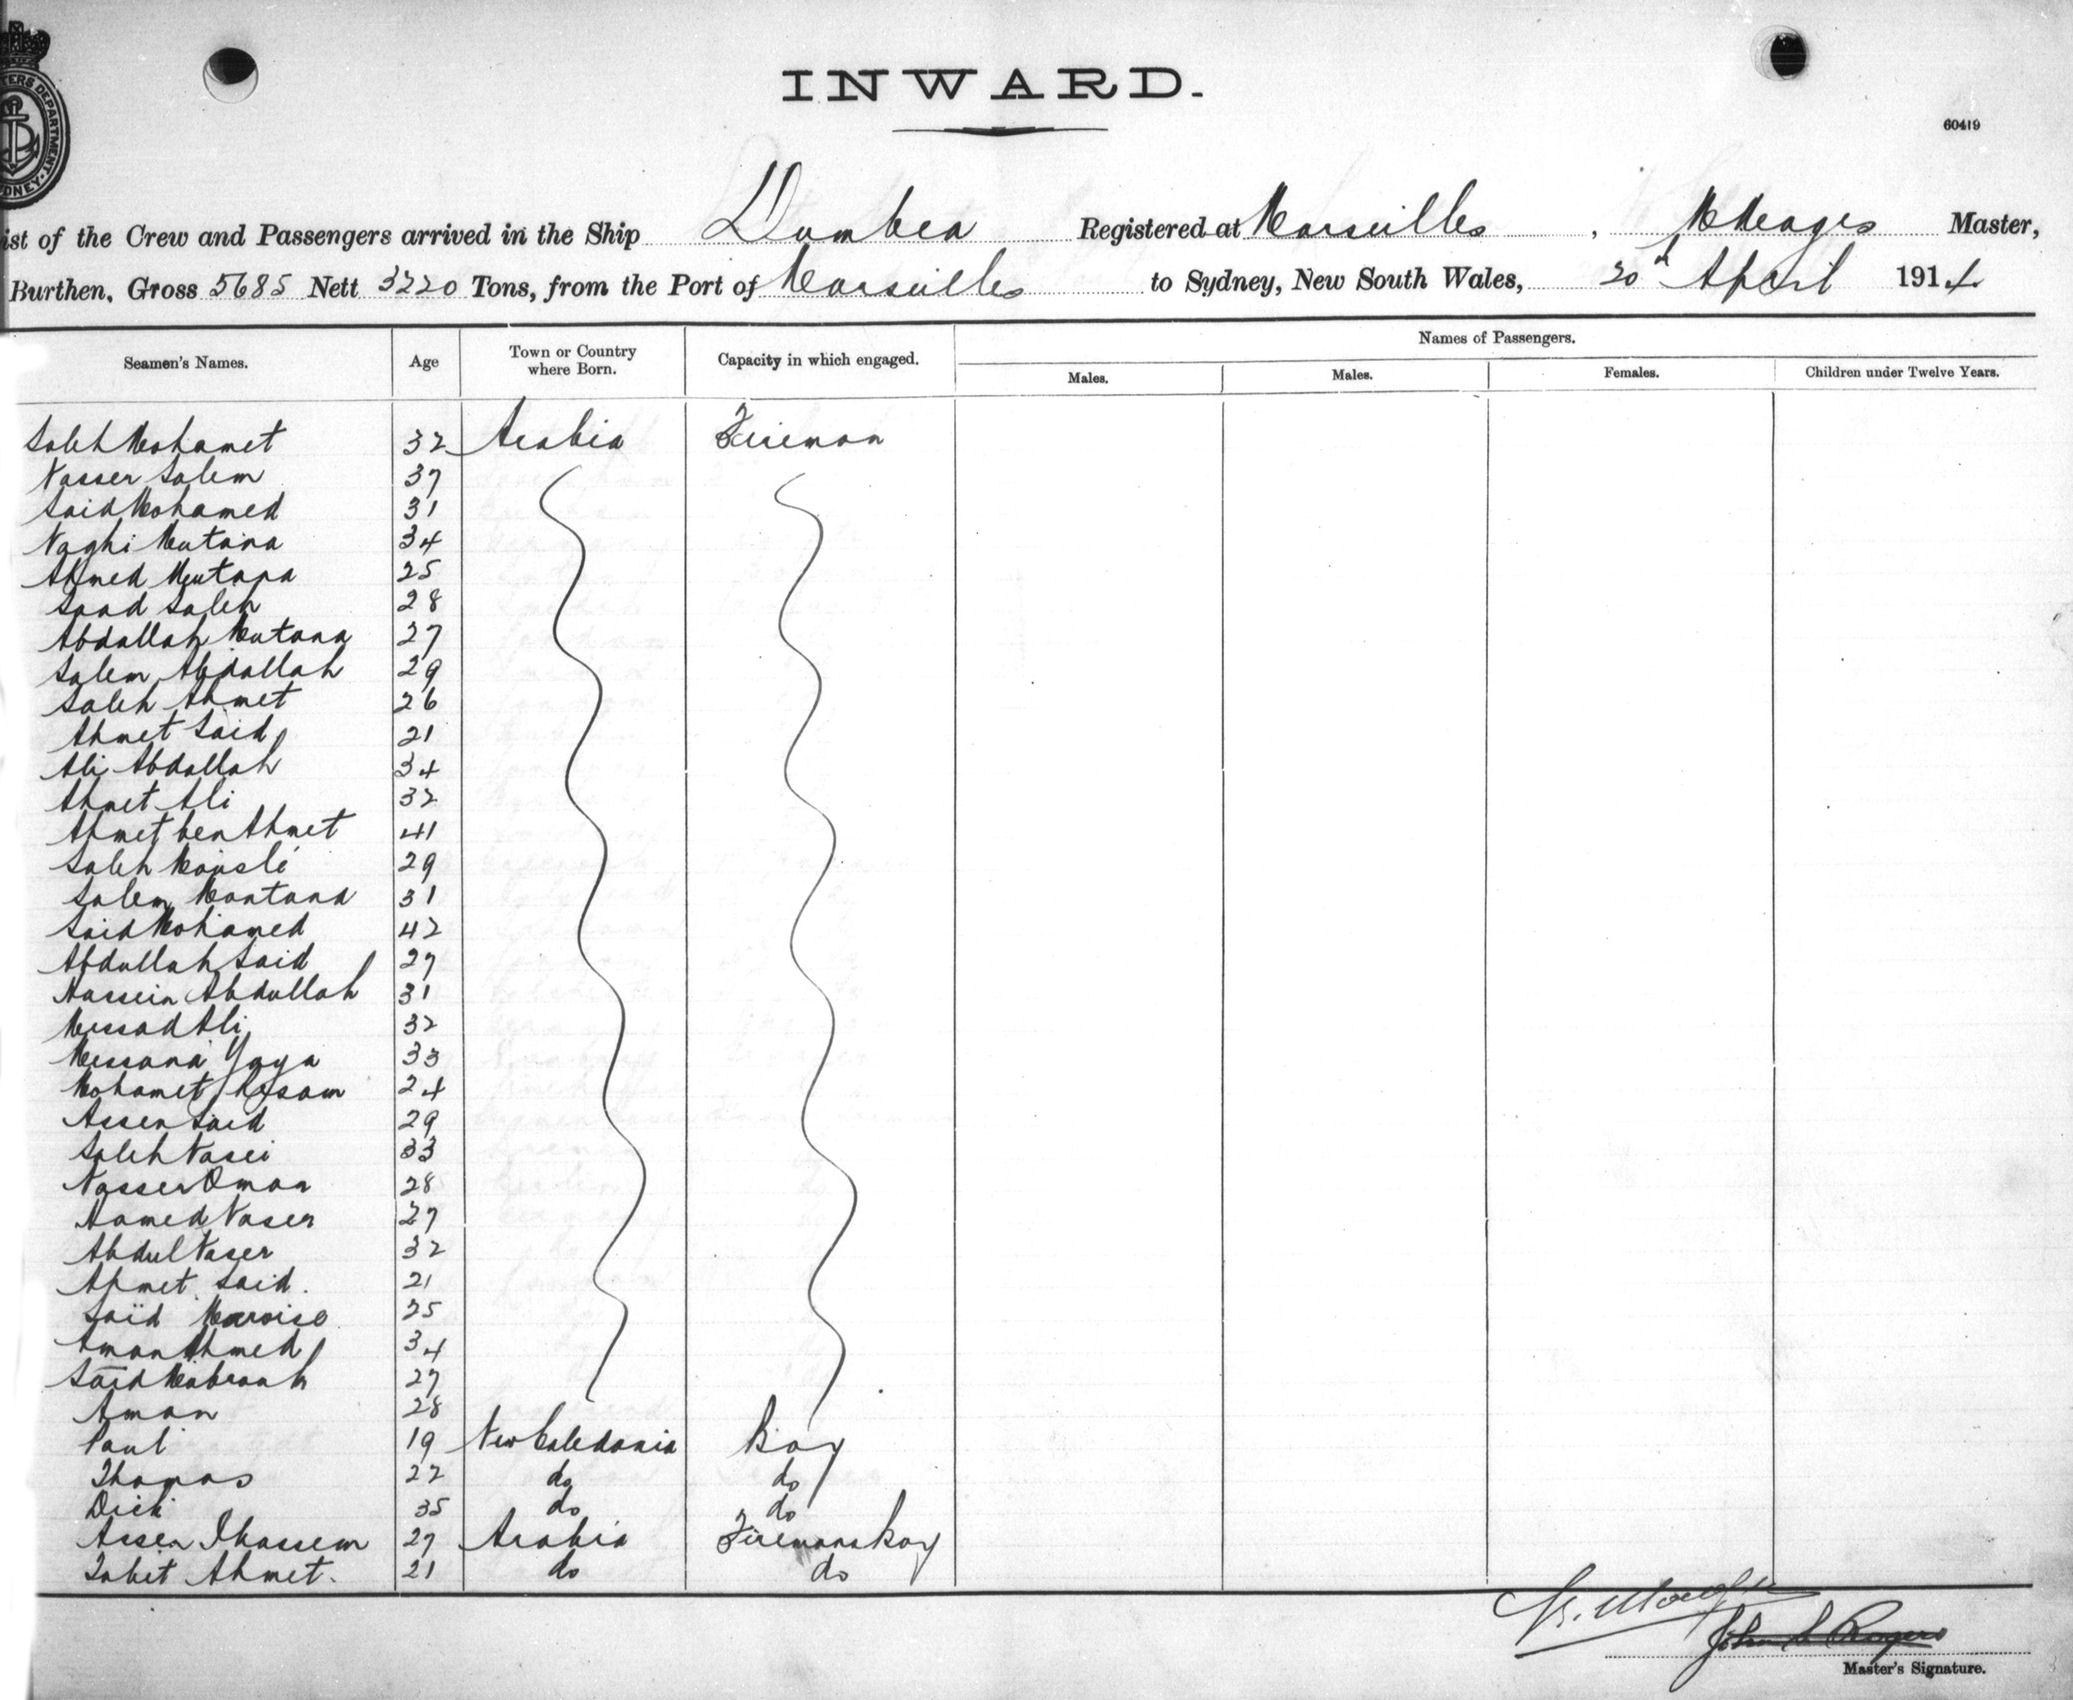 INWARD.
60419
TERS DEPARTMENT
DNEY
ist of the Crew and Passengers arrived in the Ship Dumbea Registered at Marseilles, Master,
Burthen, Gross 5685 Nett 3220 Tons, from the Port of Marseilles to Sydney, New South Wales, 20th April 1914
Names of Passengers.
Seamen's Names. Age Town or Country where Born. Capacity in which engaged. Males. Males. Females. Children under Twelve Years.
Saleh Mohamet 32 Arabia Fireman
Nasser Salem 37
Said Mohamed 31
Naghi Mutana 34
Ahmed Mutana 25
Saad Saleh 28
Abdallah Mutana 27
Salem Abdallah 29
Saleh Ahmet 26
Ahmet Said 21
Ali Abdallah 34
Ahmet Ali 32
Ahmet ben Ahmet 41
Saleh 29
Salem Montana 31
Said Mohamed 42
Abdullah Said 27
Hassein Abdullah 31
Messad Ali 32
Messana Yaya 33
Mohamet 24
Assen Said 29
Saleh Nasei 33
Nasser Oman 28
Hamed Naser 27
Abdul Naser 32
Ahmet Said. 21
Saïd 25
Aman Ahmed 34
Said Mabrouk 27
Aman 28
Paul 19 New Caledonia Boy
Thomas 22 do do
Dick 35 do do
Assen 27 Arabia Firemans Boy
Tabit Ahmet. 21 do do
John Rogers
Master's Signature.